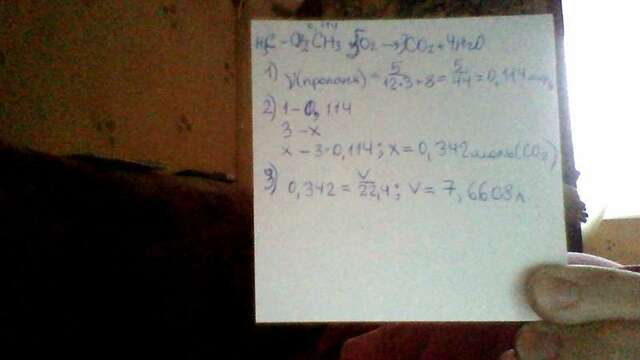 0,114
H₃C-CH₂CH₃ 5O₂ → 3CO₂ + 4H₂O
1) ν(пропана) = 5/12·3+8 = 5/44 = 0,114 моль
2) 1 - 0,114
3 - x
x - 3·0,114; x = 0,342 моль (CO₂)
3) 0,342 = V/22,4; V = 7,6608 л